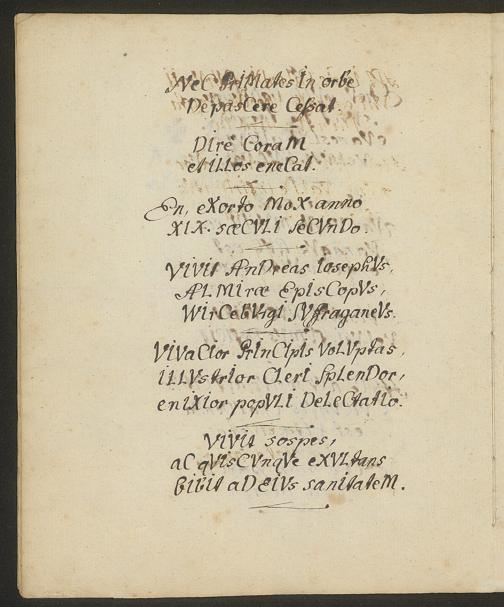 NeC PriMates In orbe
DepasCere Ceßat.
DIre CoraM
et ILLos eneCat.
En, eXorto MoX anno
XIX. sæCVLI seCVnDo.
VIVIt AnDreas IosephVs,
ALMIræ EpIsCopVs,
WIrCebVrgI SVffraganeVs.
VIVaCIor PrInCIpIs VoLVptas,
ILLVstrIor CLerI SpLenDor,
enIXIor popVLI DeLeCtatIo.
VIVIt sospes,
aC qVIsCVnqVe eXVLtans
bIbIt aD EIVs sanItateM.